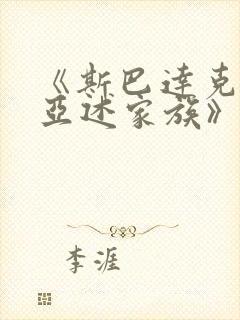 《斯巴达克
亚述家族》
李涯